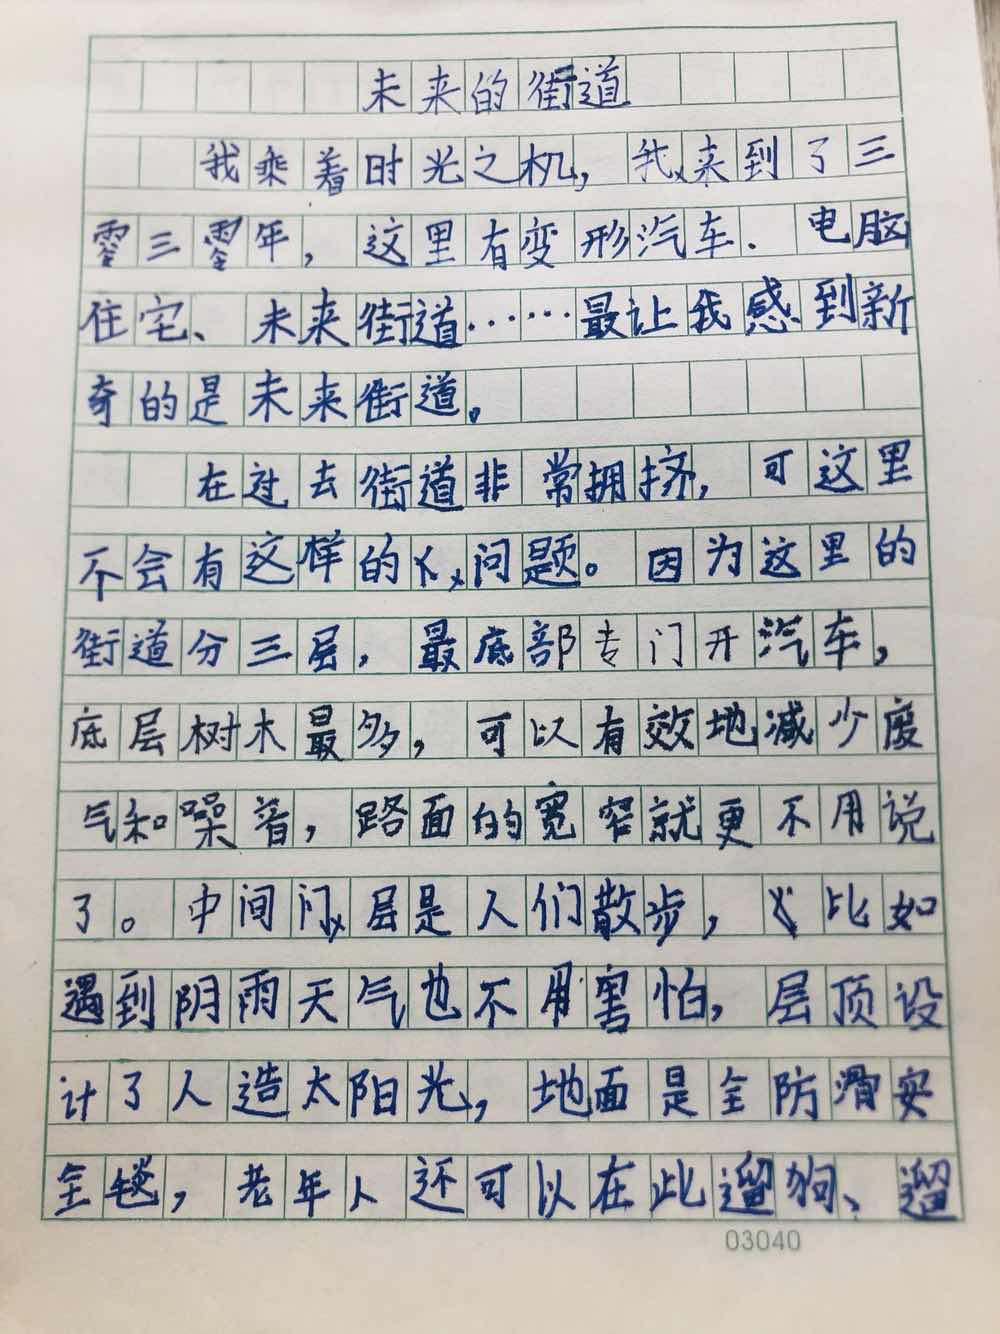 未来的街道
我乘着时光之机,来到了三
零三零年,这里有变形汽车.电脑
住宅、未来街道……最让我感到新
奇的是未来街道。
在过去街道非常拥挤,可这里
不会有这样的问题。因为这里的
街道分三层,最底部专门开汽车,
底层树木最多,可以有效地减少废
气和噪音,路面的宽窄就更不用说
了。中间层是人们散步,比如
遇到阴雨天气也不用害怕,层顶设
计了人造太阳光,地面是全防滑安
全毯,老年人还可以在此遛狗、遛
03040